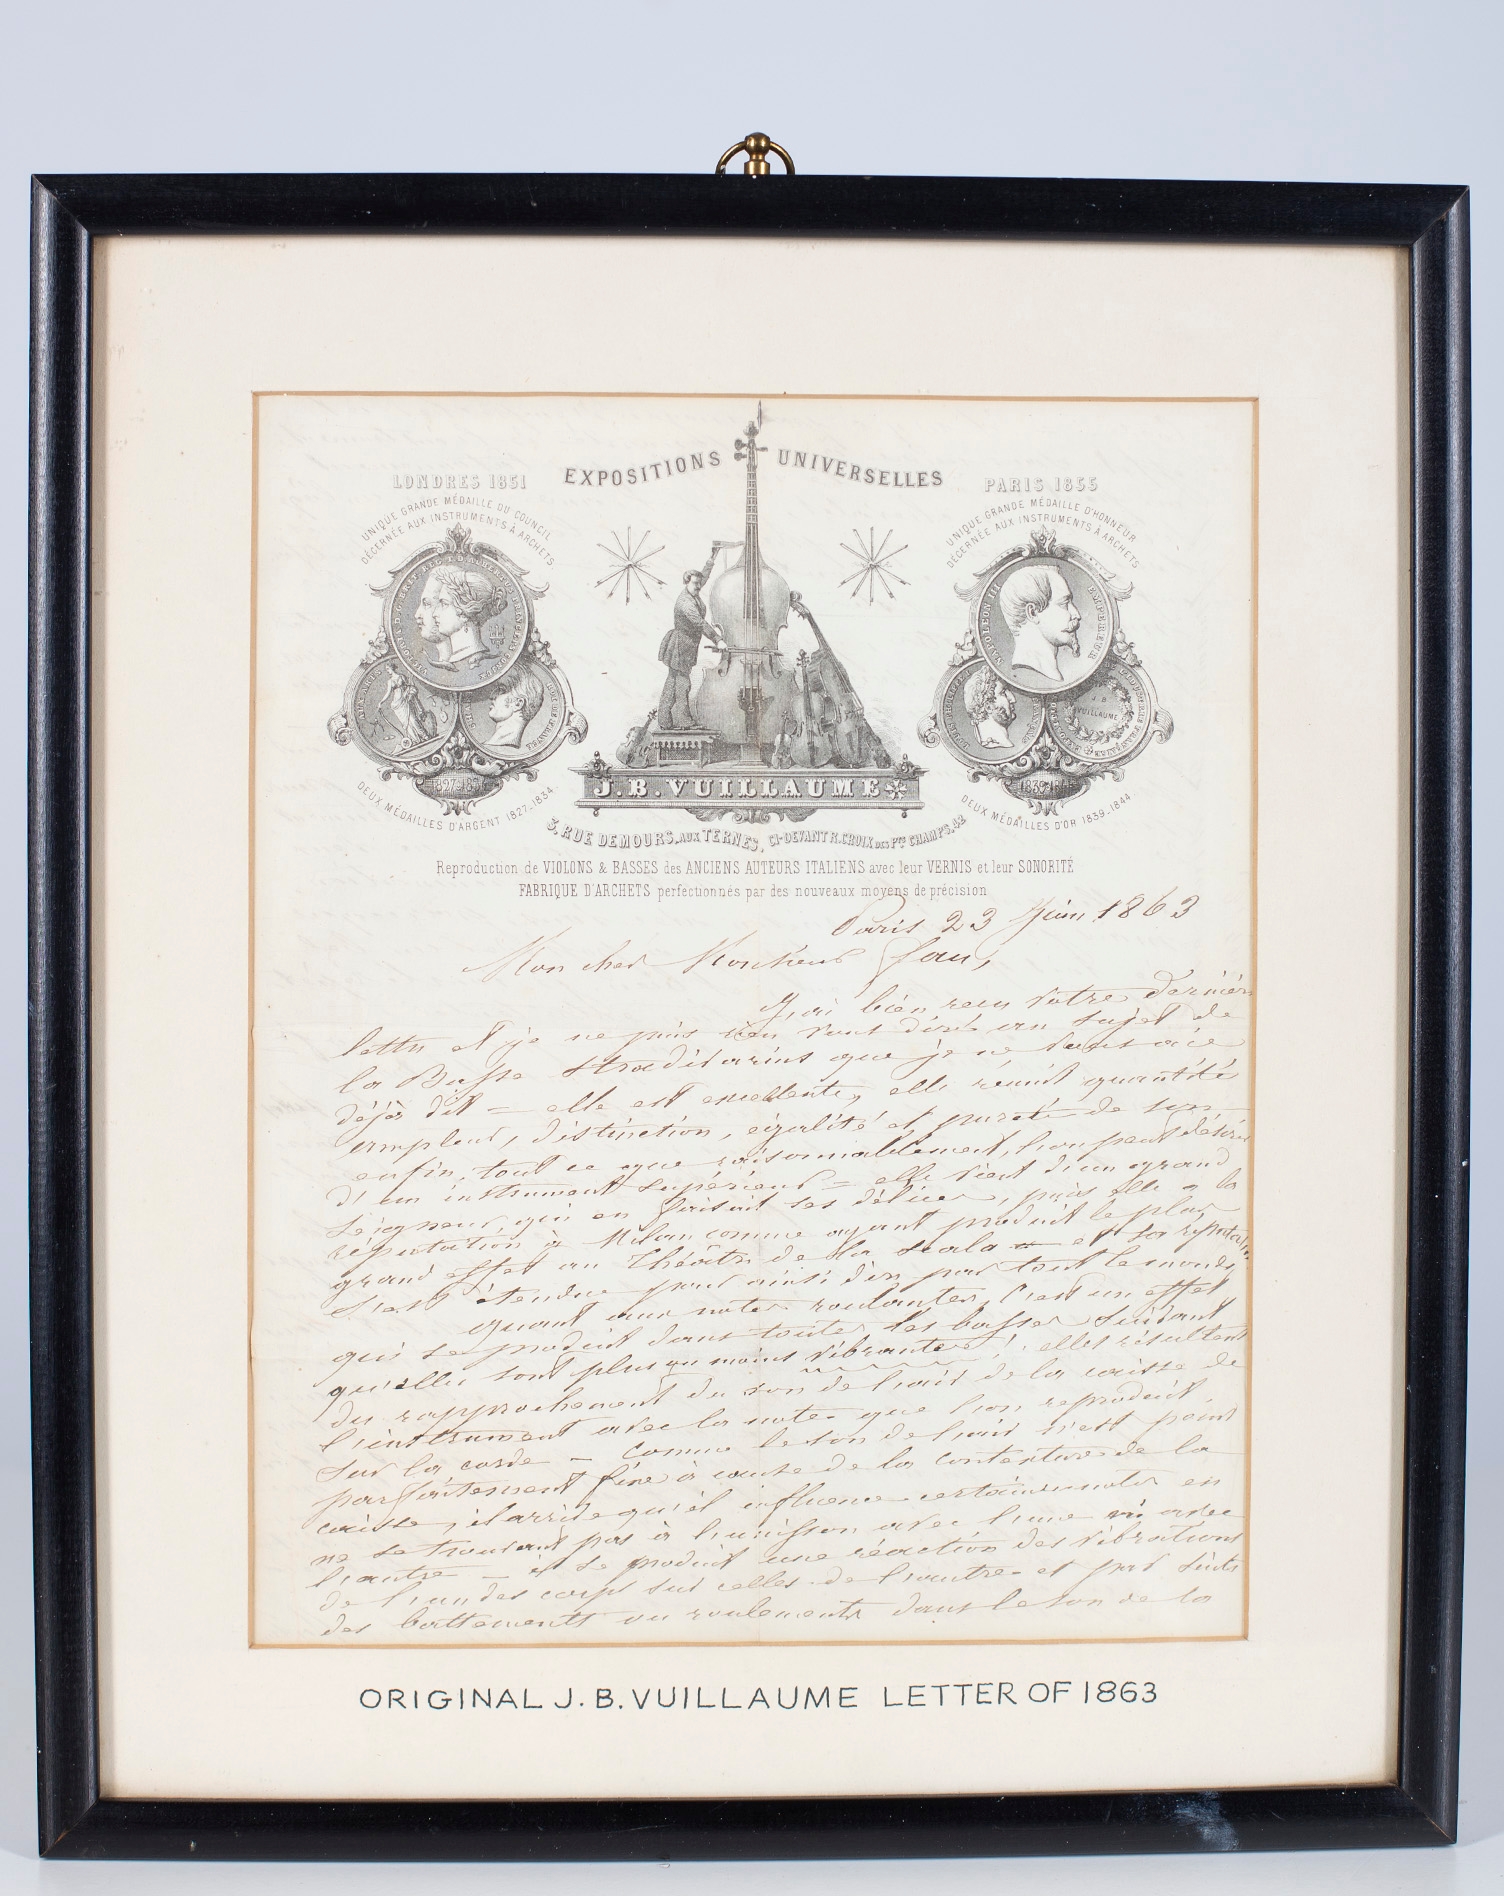 EXPOSITIONS UNIVERSELLES
LONDRES 1851
UNIQUE GRANDE MÉDAILLE DU COUNCIL
DÉCERNÉE AUX INSTRUMENTS À ARCHETS
DEUX MÉDAILLES D'ARGENT 1827-1834
PARIS 1855
UNIQUE GRANDE MÉDAILLE D'HONNEUR
DÉCERNÉE AUX INSTRUMENTS À ARCHETS
NAPOLEON III EMPEREUR
J.B
VUILLAUME
DEUX MÉDAILLES D'OR 1839-1844
J.B.VUILLAUME
3, RUE DEMOURS, AUX TERNES, CI-DEVANT R. CROIX DES Pts CHAMPS, 42
Reproduction de VIOLONS & BASSES des ANCIENS AUTEURS ITALIENS avec leur VERNIS et leur SONORITÉ
FABRIQUE D'ARCHETS perfectionnés par des nouveaux moyens de précision
Paris 23 Juin 1863
Mon cher Monsieur
J'ai bien reçu votre dernière
lettre et je ne puis rien vous dire au sujet de
la Basse Stradivarius que je ne vous aie
déjà dit = elle est excellente, elle réunit quantité
ampleur, distinction, égalité et pureté de son,
enfin, tout ce que raisonnablement, l'on peut désirer
d'un instrument supérieur = elle vient d'un grand
seigneur, qui en faisait ses délices, puis elle a la
réputation à Milan comme ayant produit le plus
grand effet au Théâtre de la Scala et sa réputation
s'est étendue pour ainsi dire par tout le monde,
Quant aux notes roulantes, c'est un effet
qui se produit dans toutes les basses suivant
qu'elles sont plus ou moins vibrantes! elles résultent
du rapprochement du son de l'air de la caisse de
l'instrument avec la note que l'on reproduit
sur la corde – Comme le son de l'air n'est point
parfaitement fixe à cause de la contexture de la
caisse, il arrive qu'il influence certaines notes en
ne se trouvant pas à l'unisson avec l'une ni avec
l'autre – il se produit une réaction des vibrations
de l'un des corps sur celles de l'autre et par suite
des battements ou roulements dans le son de la
ORIGINAL J.B.VUILLAUME LETTER OF 1863